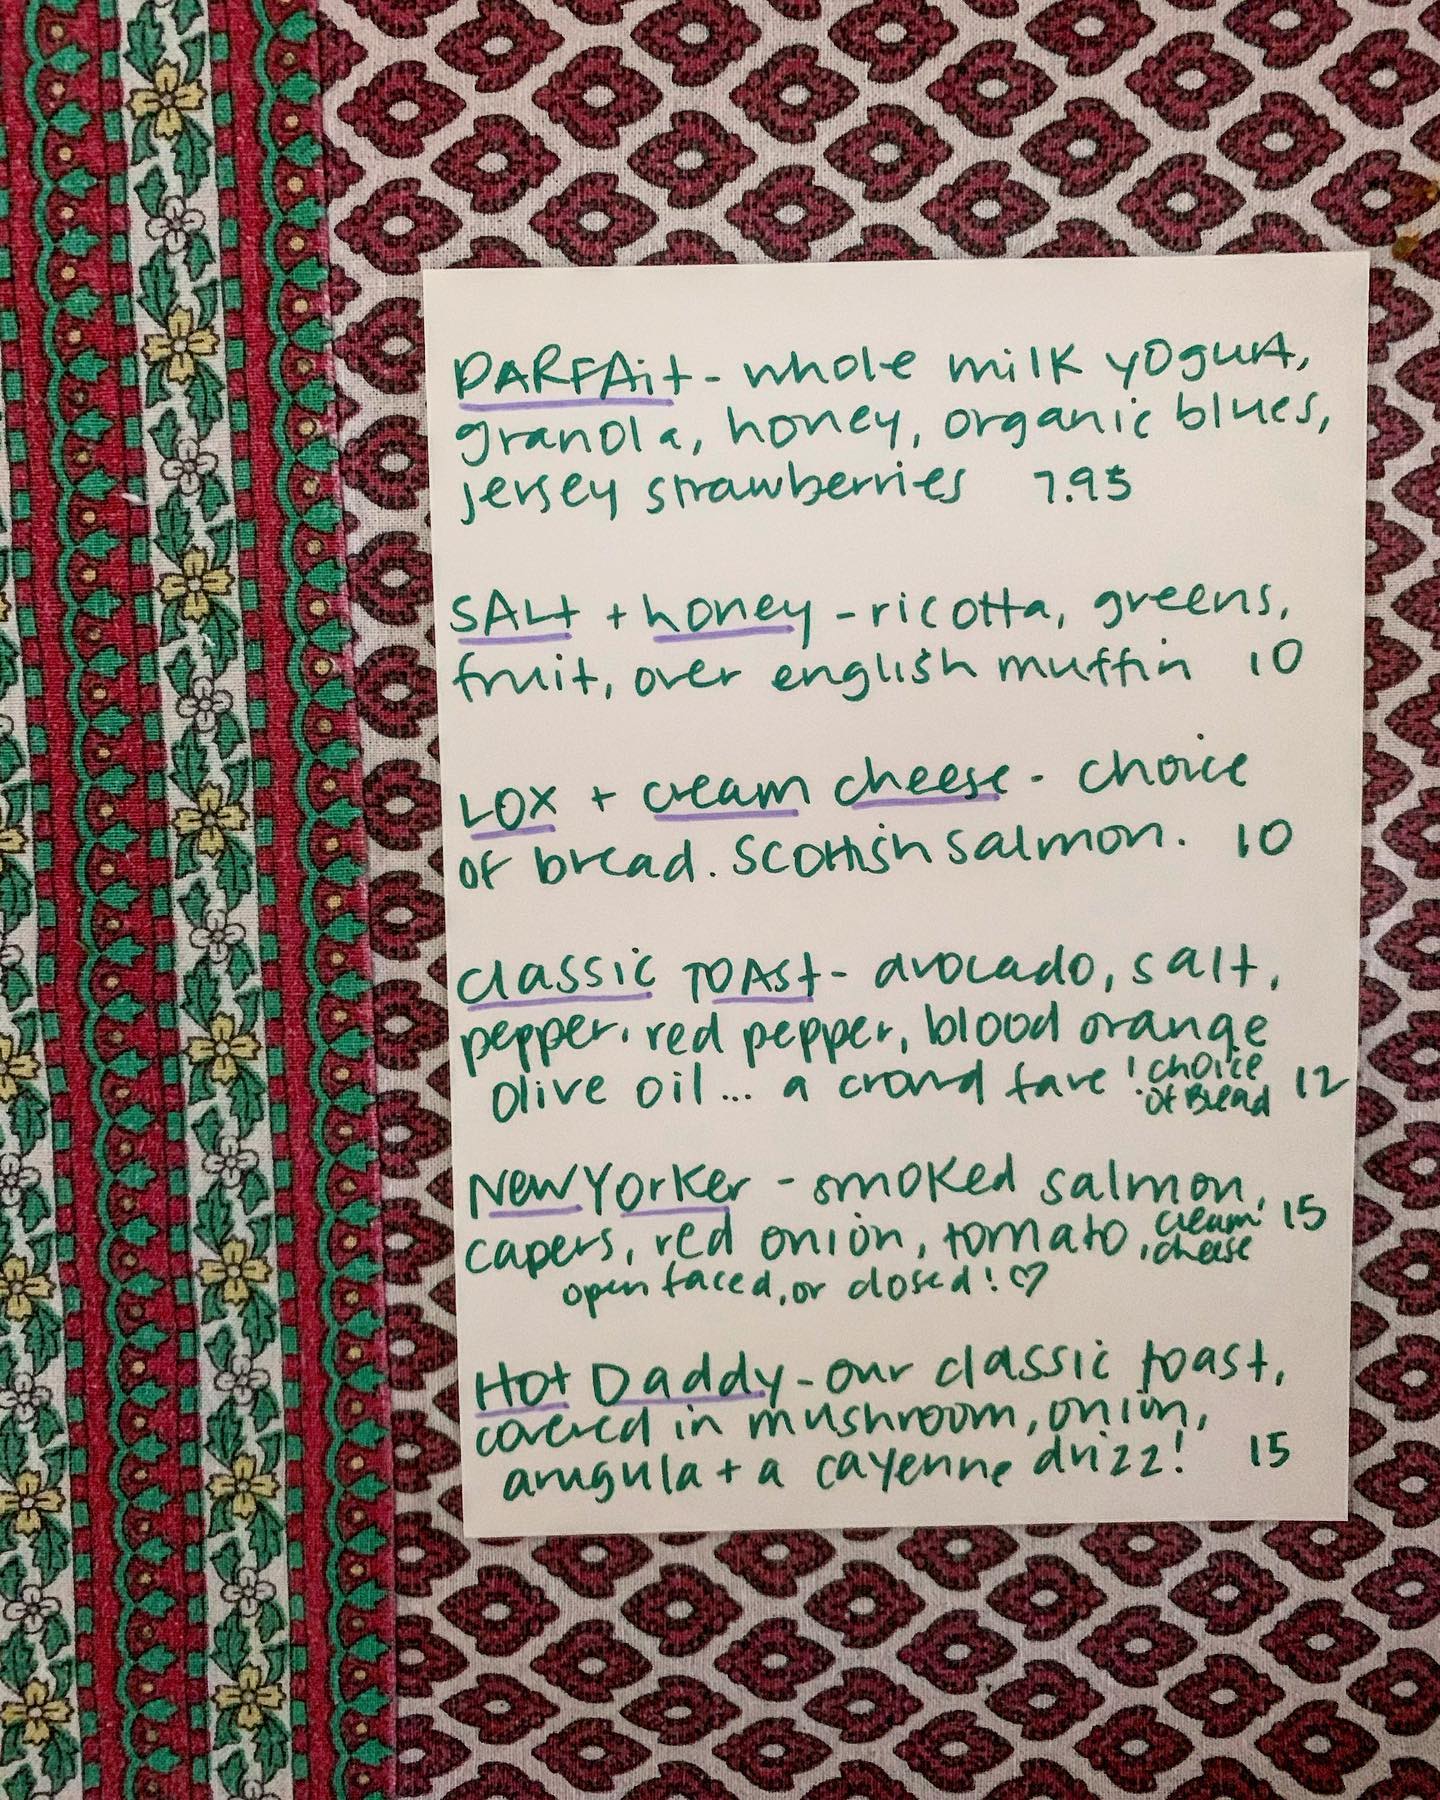 PARFAit - whole milk yogurt,
granola, honey, organic blues,
jersey strawberries 7.95
SALt + honey - ricotta, greens,
fruit, over english muffin 10
LOX + cream cheese - choice
of bread. Scottish salmon. 10
classic TOASt - avocado, salt,
pepper, red pepper, blood orange
olive oil... a crowd fave! choice of Bread 12
New Yorker - smoked salmon,
capers, red onion, tomato, cream cheese 15
open faced, or closed! ♡
Hot Daddy - our classic toast,
covered in mushroom, onion,
arugula + a cayenne drizz! 15